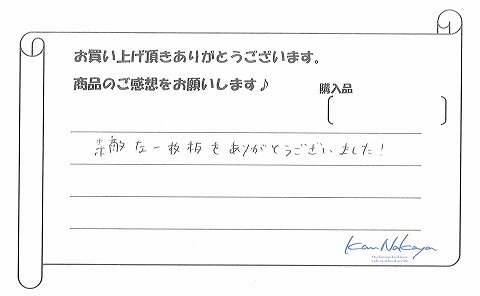 お買い上げ頂きありがとうございます。
商品のご感想をお願いします♪
購入品
素敵な一枚板をありがとうございました!
Kan Nakaya